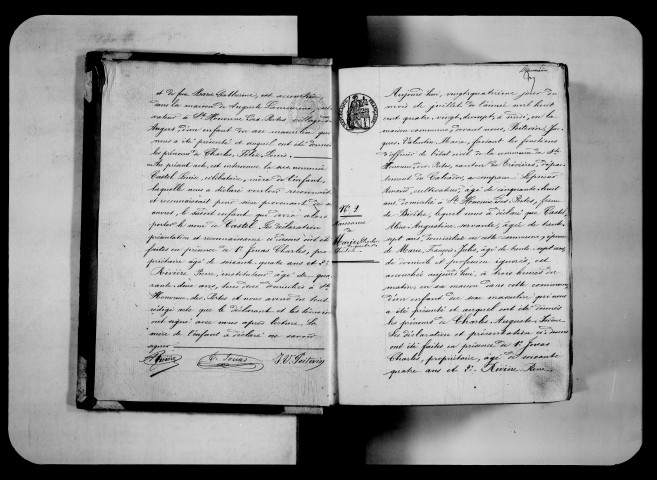 et de feu Marie Catherine, est accouchée,
dans la maison de Auguste
à St Honorine des Pertes
d'un enfant du sexe masculin qui
nous a été présenté et auquel ont été donnés
les prénoms de Charles, Félix, Louis.
est intervenue la susnommée
Castel célibataire, mère de l'enfant,
laquelle nous a déclaré vouloir reconnaître
et reconnaissant pour sien provenant de ses
œuvres, le susdit enfant qui aura alors
porter le nom de Castel. Les déclaration
présentation et reconnaissance ci dessus ont été
faites en présence de Jouas Charles, pro-
priétaire âgé de soixante quatre ans et 2°
Rivière René, instituteur âgé de qua-
rante deux ans, tous deux domiciliés à Ste
Honorine des Pertes et nous avons du tout
rédigé acte que le déclarant et les témoins
ont signé avec nous après lecture. La
mère de l'enfant a déclaré ne savoir
signer
Rivière C. Jouas J. V. Poitevin
N° 2
Naissance
de
Marie
Aujourd'hui, vingt quatrième jour du
mois de juillet de l'année mil huit
cent quatre vingt à midi, en la
maison commune, devant nous, Poitevin Jac-
ques Valentin Marie, faisant les fonctions
d'officier de l'état civil de la commune de Ste
Honorine des Pertes, canton de Trévières, dépar-
tement du Calvados, a comparu
cultivateur, âgé de cinquante huit
ans domicilié à Ste Honorine des Pertes,
lequel nous a déclaré que Castel,
Augustine servante, âgée de trente
sept ans, domiciliée en cette commune, épouse
de Marie François Jules, âgé de trente sept ans
de domicile et profession ignorés, est
accouchée aujourd'hui, à trois heures du
matin, en sa maison dans cette commune
d'un enfant du sexe masculin qui nous
a été présenté et auquel ont été donnés
les prénoms de Charles Auguste
Les déclaration et présentation ci dessus
ont été faites en présence de 1° Jouas
Charles, propriétaire, âgé de soixante
quatre ans et 2° Rivière René,